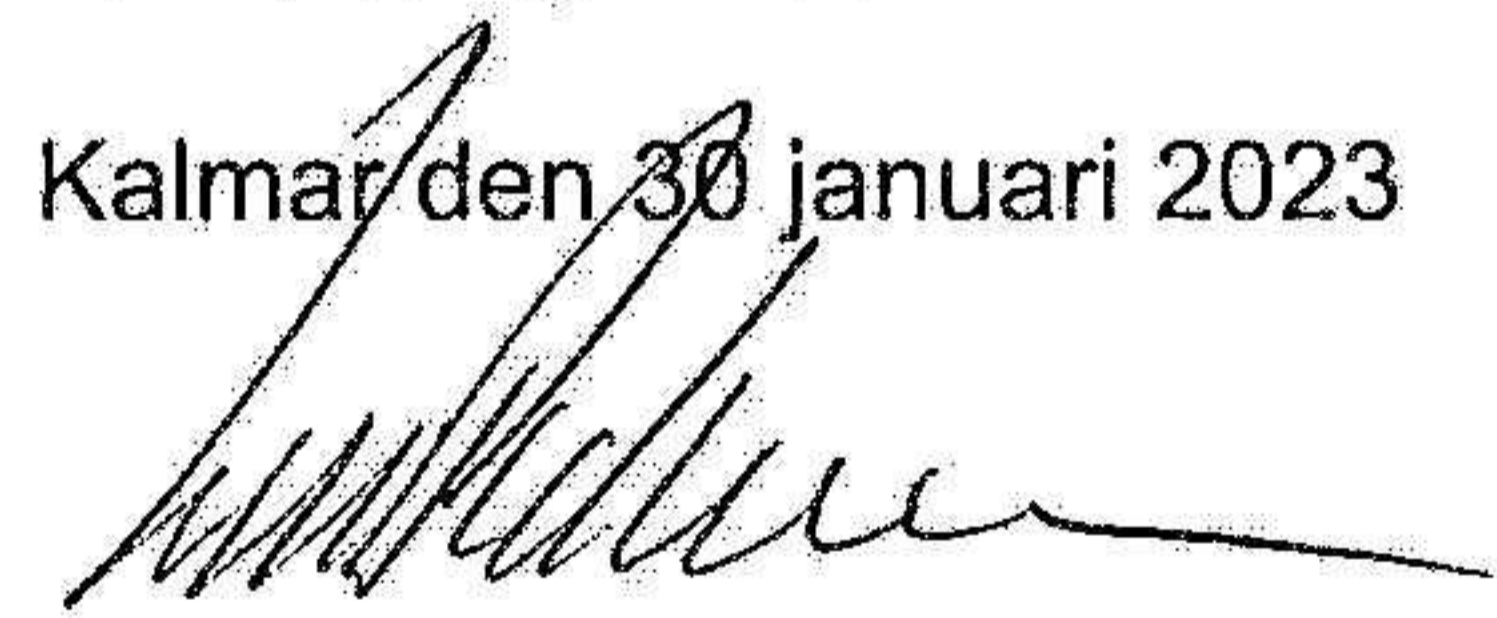 Kalmar den 30 januari 2023